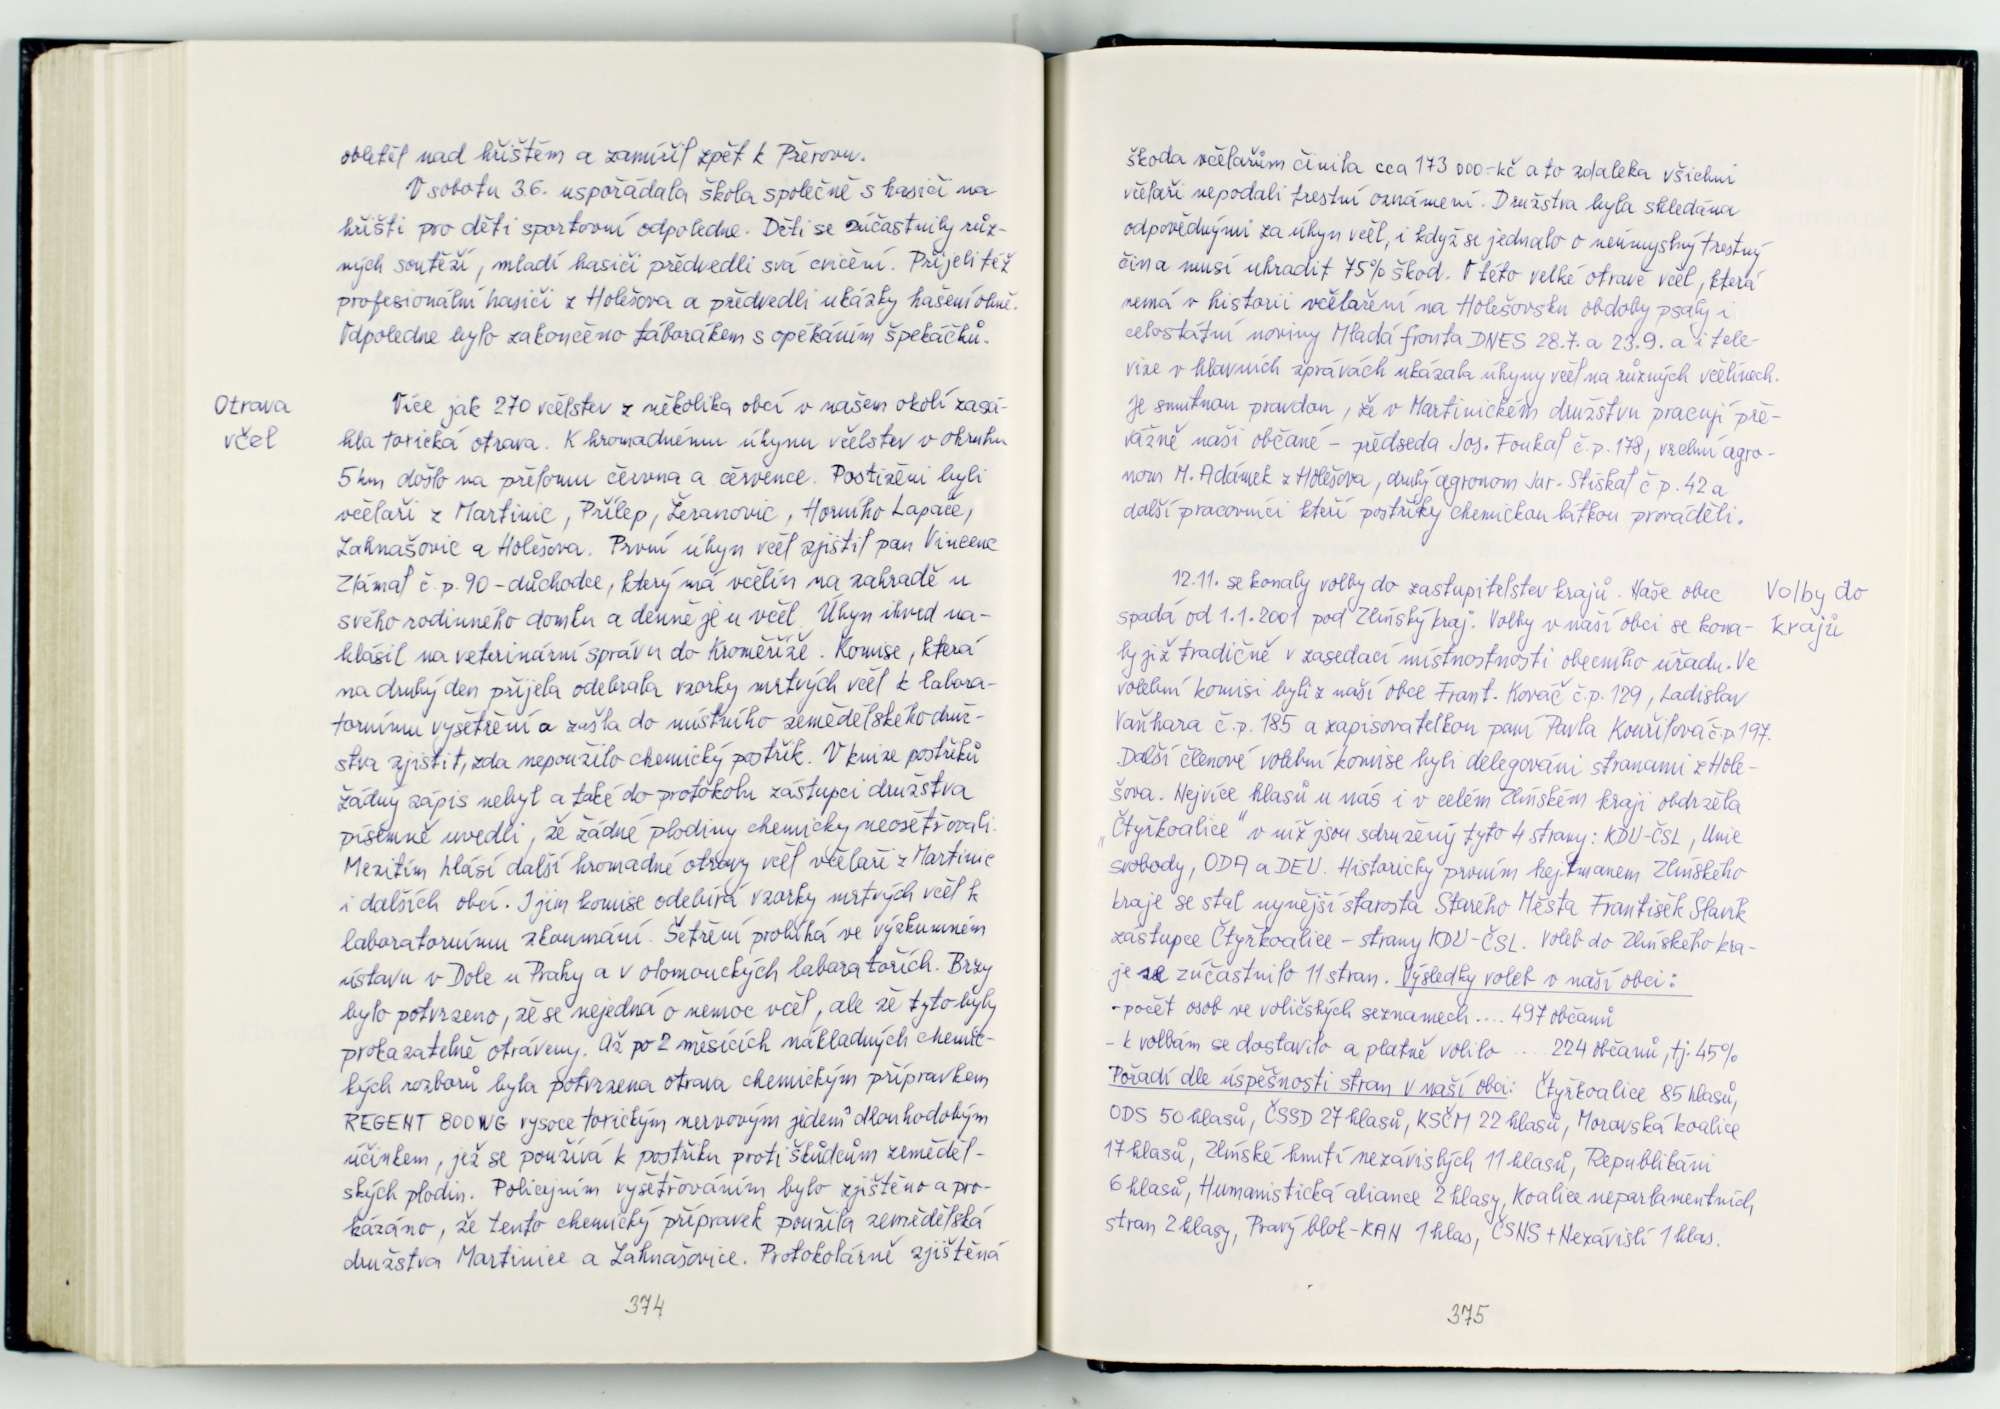 obletěl nad hřištěm a zamířil zpět k Přerovu.
V sobotu 3.6. uspořádala škola společně s hasiči na
hřišti pro děti sportovní odpoledne. Děti se zúčastnily růz-
ných soutěží, mladí hasiči předvedli svá cvičení. Přijeli též
profesionální hasiči z Holešova a předvedli ukázky hašení ohně.
Odpoledne bylo zakončeno táborákem s opékáním špekáčků.
Otrava
včel
Více jak 270 včelstev z několika obcí v našem okolí zasá-
hla toxická otrava. K hromadnému úhynu včelstev v okruhu
5 km došlo na přelomu června a července. Postiženi byli
včelaři z Martinic, Přílep, Žeranovic, Horního Lapače,
Lahnašovic a Holešova. První úhyn včel zjistil pan Vincenc
Zlámal č.p. 90 - důchodce, který má včelín na zahradě u
svého rodinného domku a denně je u včel. Úhyn ihned na-
hlásil na veterinární správu do Kroměříže. Komise, která
na druhý den přijela odebrala vzorky mrtvých včel k labora-
tornímu vyšetření a zašla do místního zemědělského druž-
stva zjistit, zda nepoužilo chemický postřik. V knize postřiků
žádný zápis nebyl a také do protokolu zástupci družstva
písemně uvedli, že žádné plodiny chemicky neošetřovali.
Mezitím hlásí další hromadné otravy včel včelaři z Martinic
i dalších obcí. I jim komise odebírá vzorky mrtvých včel k
laboratornímu zkoumání. Šetření probíhá ve výzkumném
ústavu v Dole u Prahy a v olomouckých laboratořích. Brzy
bylo potvrzeno, že se nejedná o nemoc včel, ale že tyto byly
prokazatelně otráveny. Až po 2 měsících nákladných chemic-
kých rozborů byla potvrzena otrava chemickým přípravkem
REGENT 800WG vysoce toxickým nervovým jedem s dlouhodobým
účinkem, jež se používá k postřiku proti škůdcům zeměděl-
ských plodin. Policejním vyšetřováním bylo zjištěno a pro-
kázáno, že tento chemický přípravek použila zemědělská
družstva Martinice a Lahnašovice. Protokolárně zjištěná
374
škoda včelařům činila cca 173 000-kč a to zdaleka všichni
včelaři nepodali trestní oznámení. Družstva byla shledána
odpovědnými za úhyn včel, i když se jednalo o neúmyslný trestný
čin a musí uhradit 75% škod. O této velké otravě včel, která
nemá v historii včelaření na Holešovsku obdoby psaly i
celostátní noviny Mladá fronta DNES 28.7. a 23.9. a i tele-
vize v hlavních zprávách ukázala úhyny včel na různých včelínech.
Je smutnou pravdou, že v Martinickém družstvu pracují pře-
vážně naši občané - předseda Jos. Foukal č.p. 178, vrchní agro-
nom M. Adámek z Holešova, druhý agronom Jar. Stískal č p. 42 a
další pracovníci kteří postřiky chemickou látkou prováděli.
Volby do
krajů
12.11. se konaly volby do zastupitelstev krajů. Naše obec
spadá od 1.1.2001 pod Zlínský kraj. Volby v naší obci se kona-
ly již tradičně v zasedací místnostnosti obecního úřadu. Ve
volební komisi byli z naší obce Frant. Kováč č.p. 129, Ladislav
Vaňhara č.p. 185 a zapisovatelkou paní Pavla Kouřilová č.p. 197.
Další členové volební komise byli delegováni stranami z Hole-
šova. Nejvíce hlasů u nás i v celém Zlínském kraji obdržela
„Čtyřkoalice" v níž jsou sdruženy tyto 4 strany: KDU-ČSL, Unie
svobody, ODA a DEU. Historicky prvním hejtmanem Zlínského
kraje se stal nynější starosta Starého Města František Slavík
zástupce Čtyřkoalice - strany KDU-ČSL. Voleb do Zlínského kra-
je se zúčastnilo 11 stran. Výsledky voleb v naší obci:
- počet osob ve voličských seznamech .... 497 občanů
- k volbám se dostavilo a platně volilo .... 224 občanů, tj. 45%
Pořadí dle úspěšnosti stran v naší obci: Čtyřkoalice 85 hlasů,
ODS 50 hlasů, ČSSD 27 hlasů, KSČM 22 hlasů, Moravská koalice
17 hlasů, Zlínské hnutí nezávislých 11 hlasů, Republikáni
6 hlasů, Humanistická aliance 2 hlasy, Koalice neparlamentních
stran 2 hlasy, Pravý blok-KAN 1 hlas, ČSNS + Nezávislí 1 hlas.
375